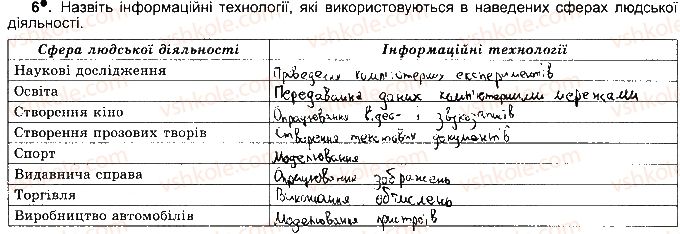 6●. Назвіть інформаційні технології, які використовуються в наведених сферах людської
діяльності.
Сфера людської діяльності Інформаційні технології
Наукові дослідження Проведення комп'ютерних експериментів
Освіта Передавання даних комп'ютерними мережами
Створення кіно Опрацювання відео- і звукозаписів
Створення прозових творів Створення текстових документів
Спорт Моделювання
Видавнича справа Опрацювання зображень
Торгівля Виконання обчислень
Виробництво автомобілів Моделювання пристроїв